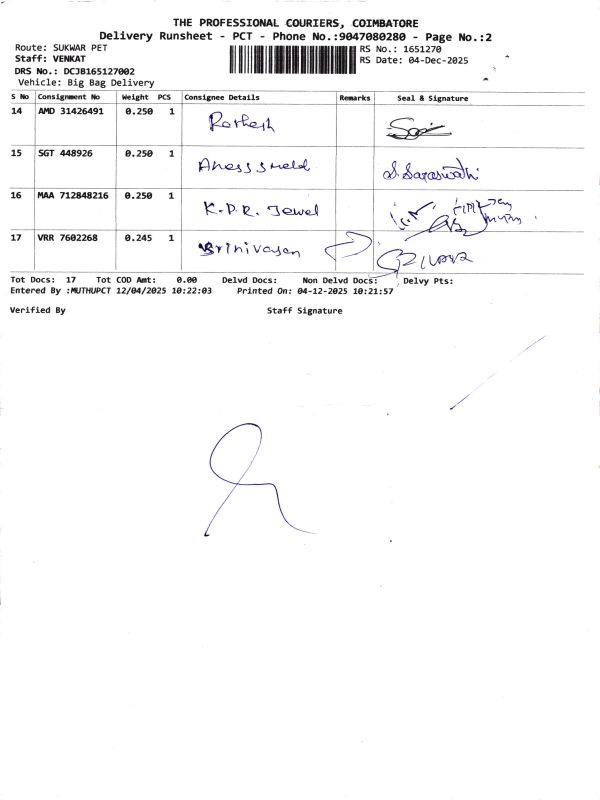 THE PROFESSIONAL COURIERS, COIMBATORE
Delivery Runsheet - PCT - Phone No.:9047080280 - Page No.:2
Route: SUKWAR PET
RS No.: 1651270
Staff: VENKAT
RS Date: 04-Dec-2025
DRS No.: DCJB165127002
Vehicle: Big Bag Delivery
S No Consignment No Weight PCS Consignee Details Remarks Seal & Signature
14 AMD 31426491 0.250 1
15 SGT 448926 0.250 1 S. Saraswathi
16 MAA 712848216 0.250 1 K.P.R. Jewel
17 VRR 7602268 0.245 1 Srinivasan
Tot Docs: 17 Tot COD Amt: 0.00 Delvd Docs: Non Delvd Docs: Delvy Pts:
Entered By :MUTHUPCT 12/04/2025 10:22:03 Printed On: 04-12-2025 10:21:57
Verified By Staff Signature